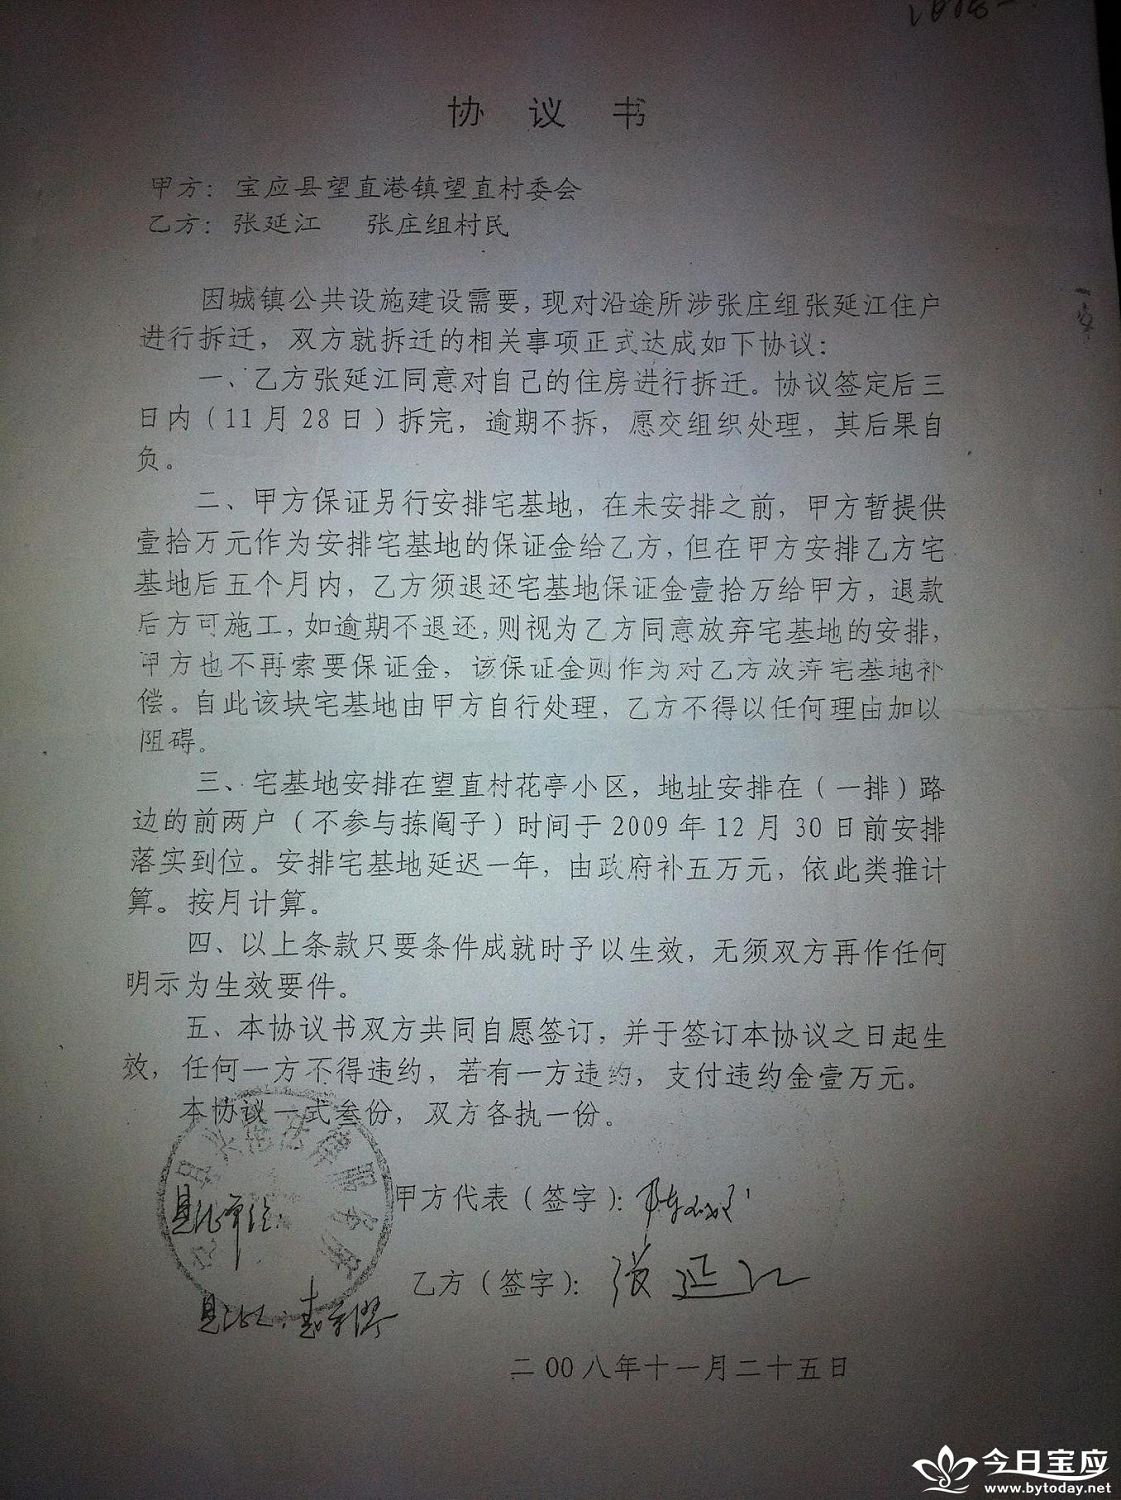 协 议 书
甲方：宝应县望直港镇望直村委会
乙方：张延江 张庄组村民
因城镇公共设施建设需要，现对沿途所涉张庄组张延江住户
进行拆迁，双方就拆迁的相关事项正式达成如下协议：
一、乙方张延江同意对自己的住房进行拆迁。协议签定后三
日内（11月28日）拆完，逾期不拆，愿交组织处理，其后果自
负。
二、甲方保证另行安排宅基地，在未安排之前，甲方暂提供
壹拾万元作为安排宅基地的保证金给乙方，但在甲方安排乙方宅
基地后五个月内，乙方须退还宅基地保证金壹拾万给甲方，退款
后方可施工，如逾期不退还，则视为乙方同意放弃宅基地的安排，
甲方也不再索要保证金，该保证金则作为对乙方放弃宅基地补
偿。自此该块宅基地由甲方自行处理，乙方不得以任何理由加以
阻碍。
三、宅基地安排在望直村花亭小区，地址安排在（一排）路
边的前两户（不参与拣阄子）时间于2009年12月30日前安排
落实到位。安排宅基地延迟一年，由政府补五万元，依此类推计
算。按月计算。
四、以上条款只要条件成就时予以生效，无须双方再作任何
明示为生效要件。
五、本协议书双方共同自愿签订，并于签订本协议之日起生
效，任何一方不得违约，若有一方违约，支付违约金壹万元。
本协议一式叁份，双方各执一份。
甲方代表（签字）：
乙方（签字）：张延江
二00八年十一月二十五日
今日宝应
www.bytoday.net